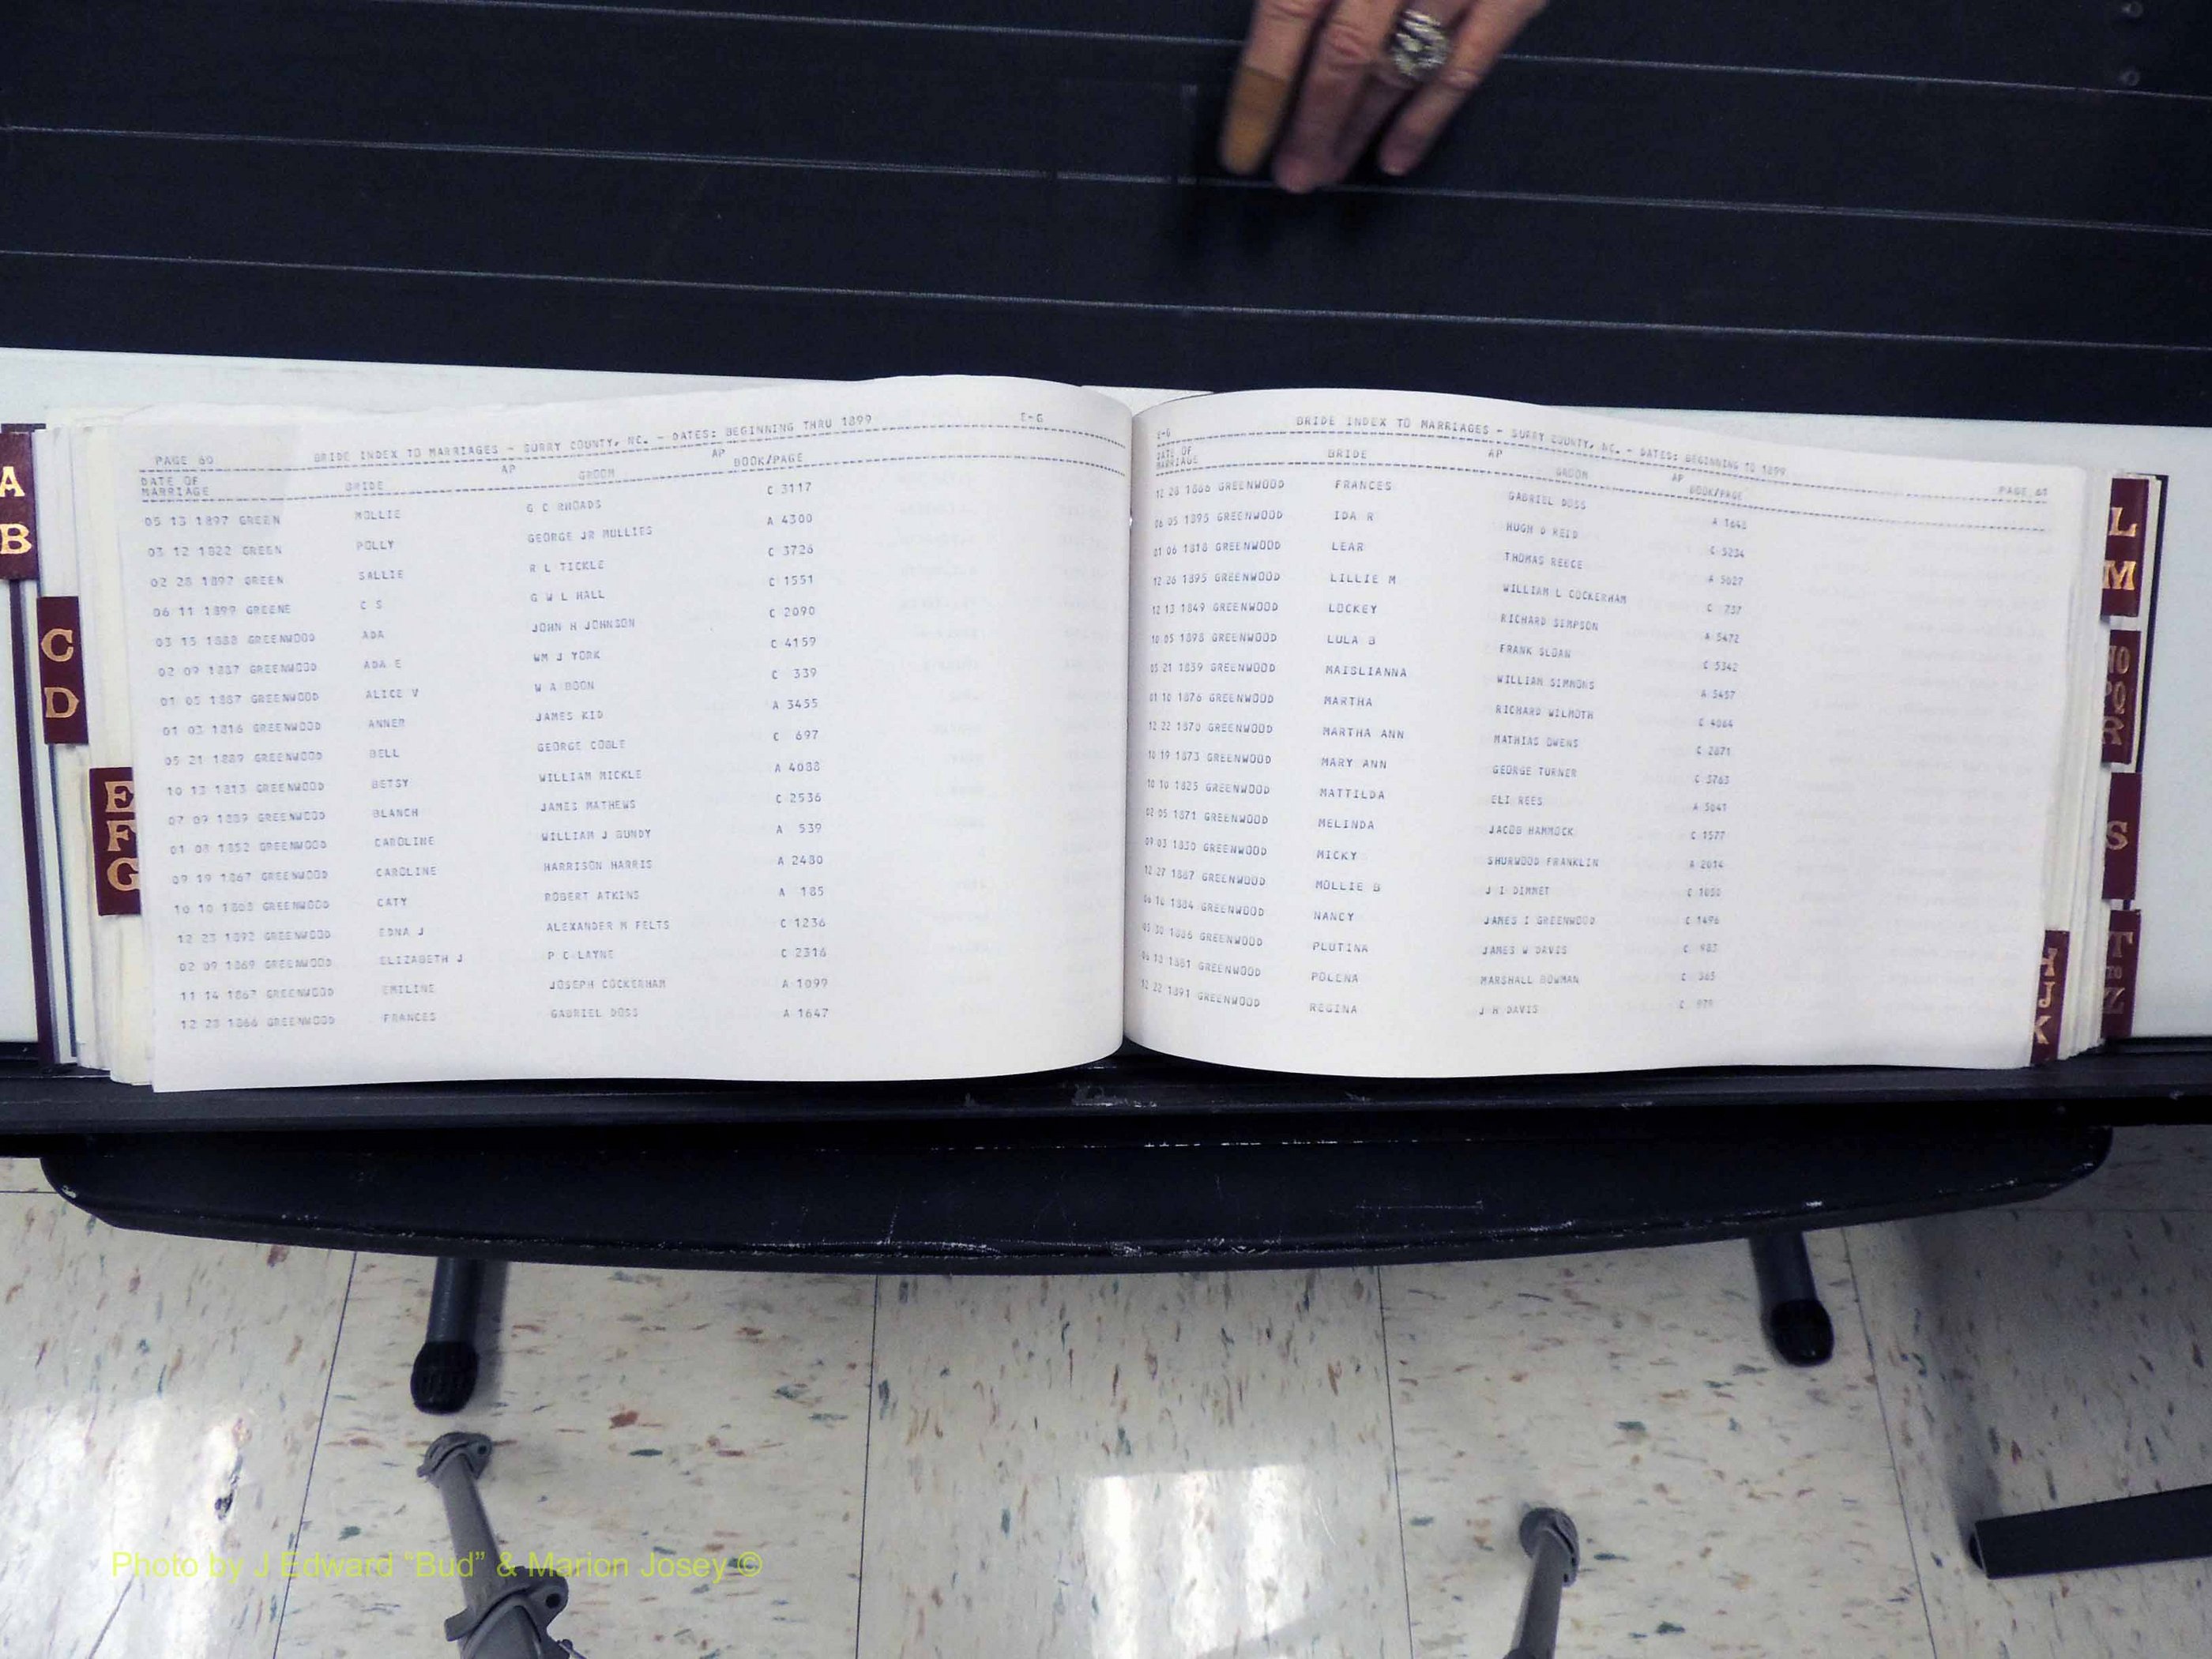 PAGE 60 BRIDE INDEX TO MARRIAGES - SURRY COUNTY, NC. - DATES: BEGINNING THRU 1899 E-G
DATE OF MARRIAGE BRIDE AP GROOM AP BOOK/PAGE
05 13 1897 GREEN MOLLIE G C RHOADS C 3117
03 12 1822 GREEN POLLY GEORGE JR MULLIES A 4300
02 28 1897 GREEN SALLIE R L TICKLE C 3726
06 11 1899 GREENE C S G W L HALL C 1551
03 15 1888 GREENWOOD ADA JOHN H JOHNSON C 2090
02 09 1887 GREENWOOD ADA E WM J YORK C 4159
01 05 1887 GREENWOOD ALICE V W A BOON C 339
01 03 1816 GREENWOOD ANNER JAMES KID A 3455
05 21 1889 GREENWOOD BELL GEORGE COBLE C 697
10 13 1813 GREENWOOD BETSY WILLIAM MICKLE A 4088
07 09 1889 GREENWOOD BLANCH JAMES MATHEWS C 2536
01 08 1852 GREENWOOD CAROLINE WILLIAM J BUNDY A 539
09 19 1867 GREENWOOD CAROLINE HARRISON HARRIS A 2480
10 10 1808 GREENWOOD CATY ROBERT ATKINS A 185
12 23 1892 GREENWOOD EDNA J ALEXANDER M FELTS C 1236
02 09 1869 GREENWOOD ELIZABETH J P C LAYNE C 2316
11 14 1867 GREENWOOD EMILINE JOSEPH COCKERHAM A 1099
12 28 1866 GREENWOOD FRANCES GABRIEL DOSS A 1647
E-G BRIDE INDEX TO MARRIAGES - SURRY COUNTY, NC. - DATES: BEGINNING TO 1899 PAGE 61
DATE OF MARRIAGE BRIDE AP GROOM AP BOOK/PAGE
12 28 1866 GREENWOOD FRANCES GABRIEL DOSS A 1648
06 05 1895 GREENWOOD IDA R HUGH D REID C 3234
01 06 1818 GREENWOOD LEAR THOMAS REECE A 5027
12 26 1895 GREENWOOD LILLIE M WILLIAM L COCKERHAM C 737
12 13 1849 GREENWOOD LOCKEY RICHARD SIMPSON A 5472
10 05 1898 GREENWOOD LULA B FRANK SLOAN C 5342
05 21 1839 GREENWOOD MAISLIANNA WILLIAM SIMMONS A 5457
01 10 1876 GREENWOOD MARTHA RICHARD WILMOTH C 4064
12 22 1870 GREENWOOD MARTHA ANN MATHIAS OWENS C 2871
10 19 1873 GREENWOOD MARY ANN GEORGE TURNER C 3763
10 10 1825 GREENWOOD MATTILDA ELI REES A 5041
02 05 1871 GREENWOOD MELINDA JACOB HAMMOCK C 1577
09 03 1830 GREENWOOD MICKY SHURWOOD FRANKLIN A 2014
12 27 1887 GREENWOOD MOLLIE B J I DIMMET C 1050
06 14 1884 GREENWOOD NANCY JAMES I GREENWOOD C 1496
05 30 1886 GREENWOOD PLUTINA JAMES W DAVIS C 983
06 18 1881 GREENWOOD POLENA MARSHALL BOWMAN C 365
12 22 1891 GREENWOOD REGINA J H DAVIS C 979
A
B
C
D
E
F
G
L
M
S
Photo by J Edward "Bud" & Marion Josey ©